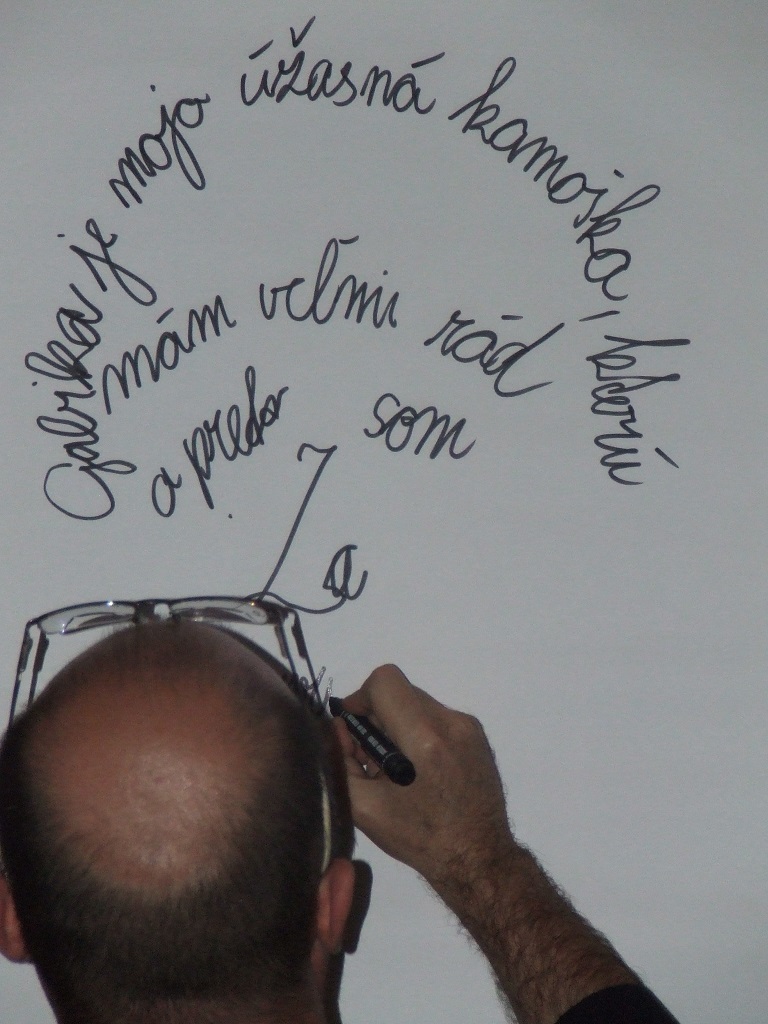 Gabika je moja úžasná kamoška, ktorú
mám veľmi rád
a preto som